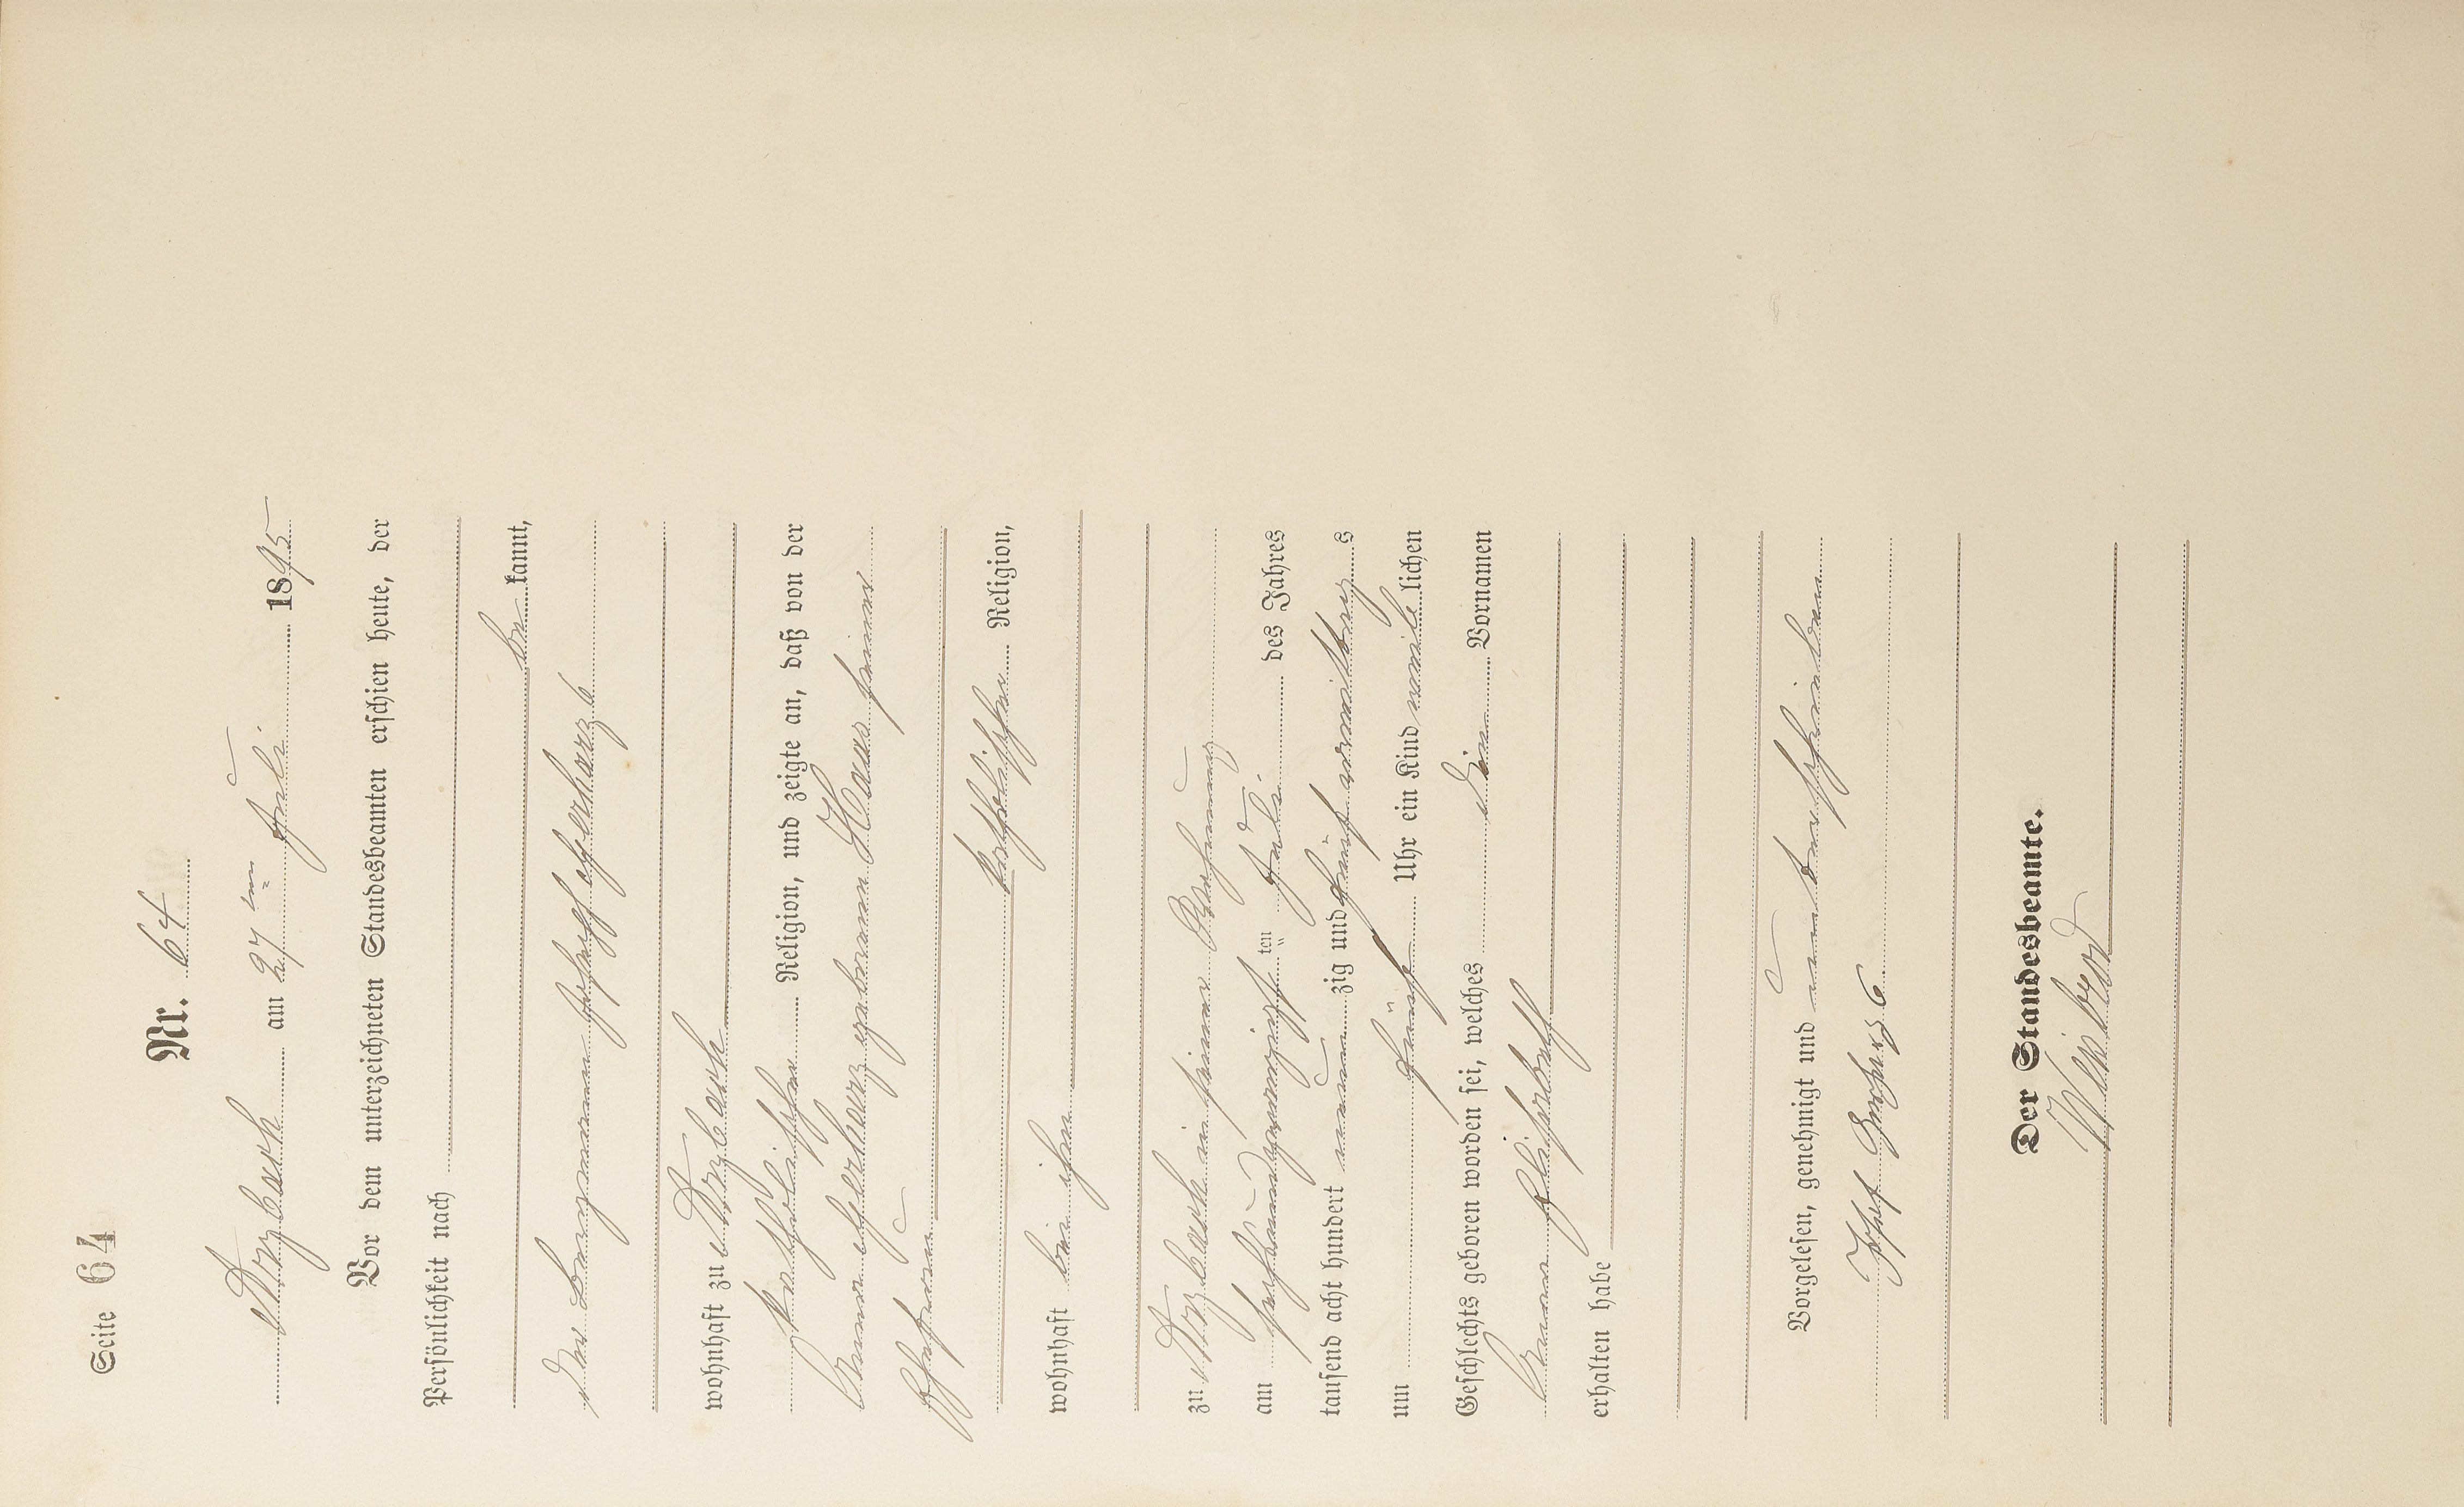 Seite 64
Nr. 64
Arzbach am 27ten Juli 1895
Vor dem unterzeichneten Standesbeamten erschien heute, der
Persönlichkeit nach
be kannt,
der Bergmann Josef Gerharz 6
wohnhaft zu Arzbach
katholischer Religion, und zeigte an, daß von der
Anna Gerharz geborene Haas seiner
Ehefrau
katholischer Religion,
wohnhaft bei ihm
zu Arzbach in seiner Wohnung
am sechsundzwanzigsten Juli des Jahres
tausend acht hundert neun zig und fünf vormittags
um fünf Uhr ein Kind weiblichen
Geschlechts geboren worden sei, welches die Vornamen
Anna Elisabeth
erhalten habe
Vorgelesen, genehmigt und unterschrieben
Josef Gerharz 6.
Der Standesbeamte.